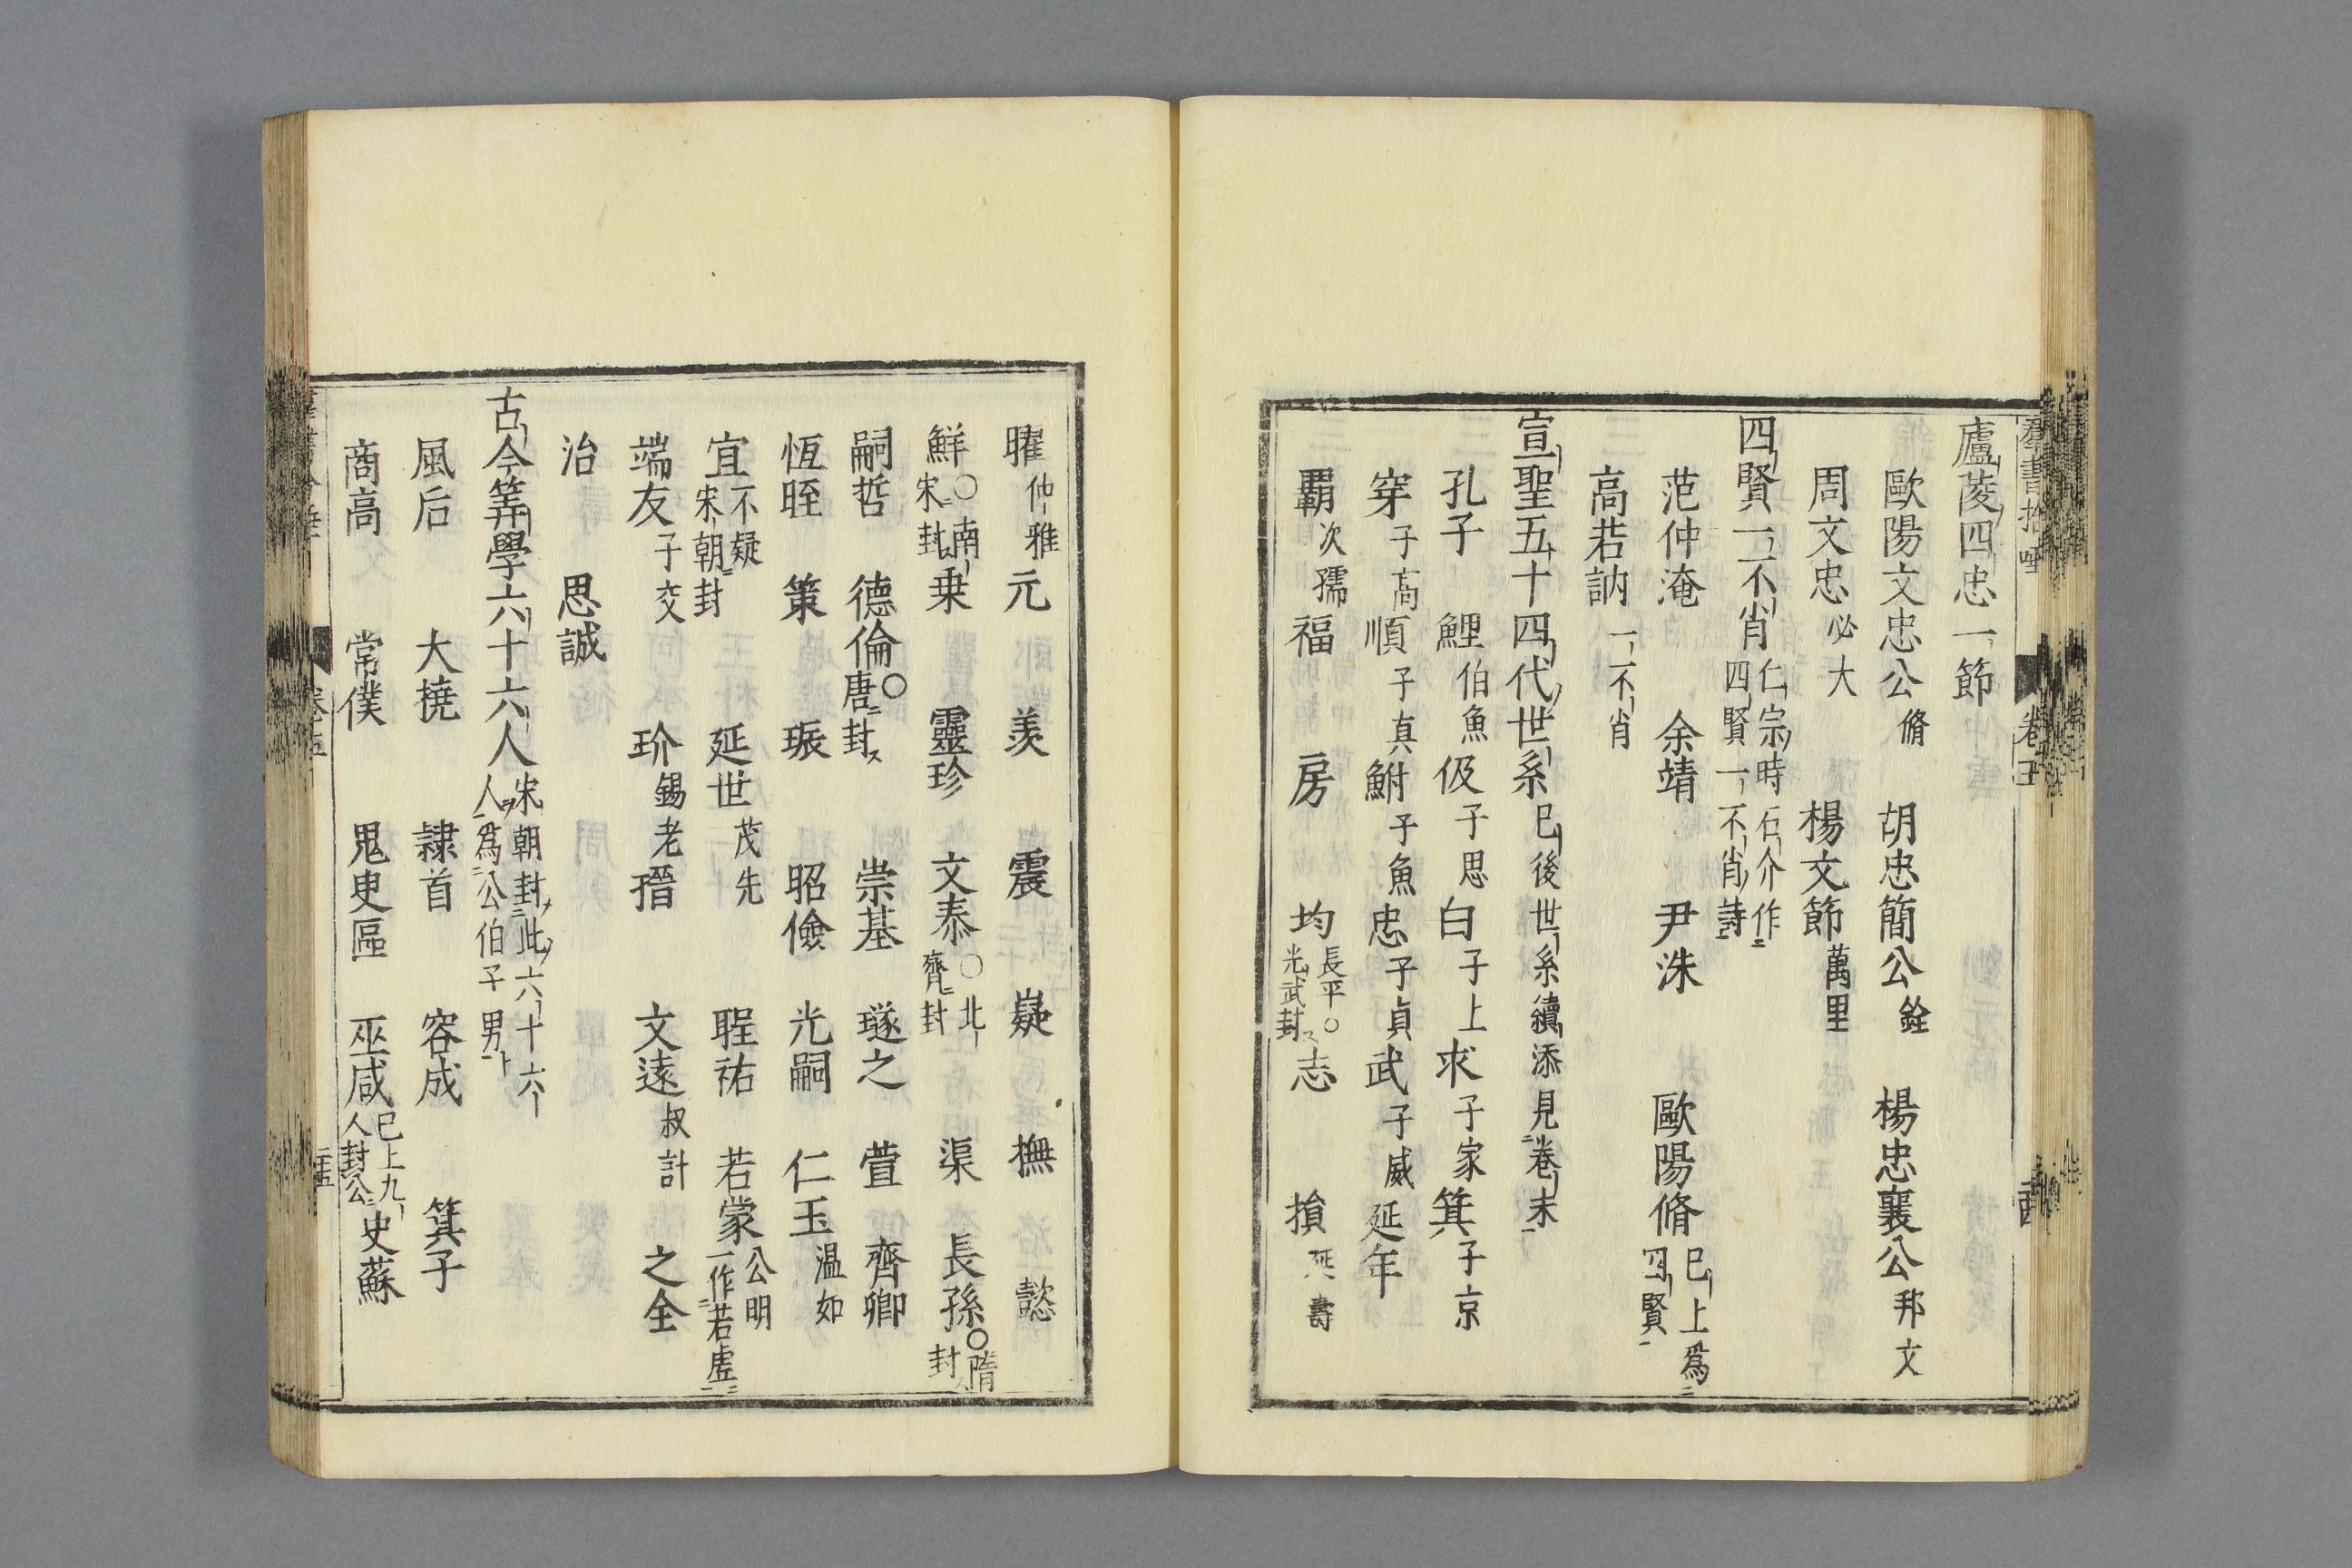 羣書拾唾 卷五
廬陵四忠一節
歐陽文忠公脩 胡忠簡公銓 楊忠襄公邦文
周文忠必大 楊文節萬里
四賢一不肖仁宗時石介作四賢一不肖詩
范仲淹 余靖 尹洙 歐陽脩巳上爲四賢
高若訥一不肖
宣聖五十四代世系巳後世系續添見卷末
孔子 鯉伯魚 伋子思 白子上 求子家 箕子京
穿子高 順子真 鮒子魚 忠子貞 武子威 延年
霸次孺 福 房 均長平○光武封 志 損延壽
曜仲雅 元 羨 震 嶷 撫 懿
鮮○南宋封 乗 靈珍 文泰○北齊封 渠 長孫○隋封
嗣哲 德倫○唐封 崇基 璲之 萱 齊卿
恆晊 策 振 昭儉 光嗣 仁玉温如
宜不疑宋朝封 延世茂先 聖祐 若蒙公明一作若虛
端友子交 玠錫老 搢 文遠叔計 之全
治 思誠
古今筭學六十六人宋朝封此六十六人爲公伯子男
風后 大撓 隷首 容成 箕子
商高 常僕 鬼臾區 巫咸巳上九人封公 史蘇